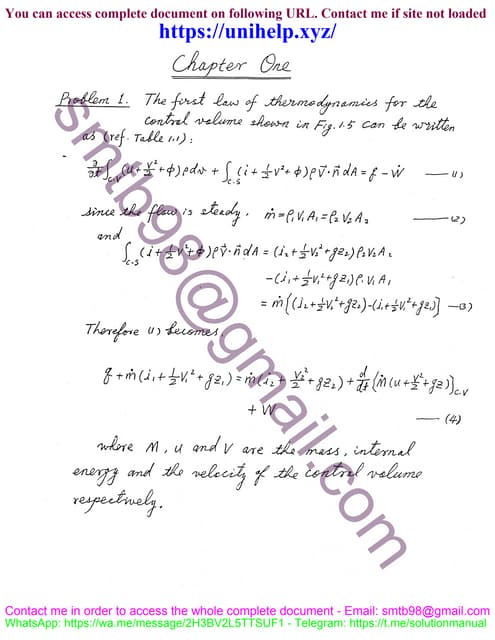 You can access complete document on following URL. Contact me if site not loaded
https://unihelp.xyz/
Chapter One
Problem 1. The first law of thermodynamics for the
control volume shown in Fig. 1.5 can be written
as (ref. Table 1.1):
∂/∂t ∫c.v (u + V²/2 + φ) ρ dv + ∫c.s (i + ½V² + φ) ρ V⃗·n⃗ dA = q - Ẇ —— (1)
since the flow is steady. ṁ = ρ₁V₁A₁ = ρ₂V₂A₂ —— (2)
and
∫c.s (i + ½V² + φ) ρ V⃗·n⃗ dA = (i₂ + ½V₂² + gz₂) ρ₂V₂A₂
- (i₁ + ½V₁² + gz₁) ρ₁V₁A₁
= ṁ{(i₂ + ½V₂² + gz₂) - (i₁ + ½V₁² + gz₁)} —(3)
Therefore (1) becomes,
q + ṁ(i₁ + ½V₁² + gz₁) = ṁ(i₂ + V₂²/2 + gz₂) + d/dt {ṁ(u + V²/2 + gz)}c.v
+ W
—— (4)
where M, u and V are the mass, internal
energy and the velocity of the control volume
respectively.
smtb98@gmail.com
Contact me in order to access the whole complete document - Email: smtb98@gmail.com
WhatsApp: https://wa.me/message/2H3BV2L5TTSUF1 - Telegram: https://t.me/solutionmanual